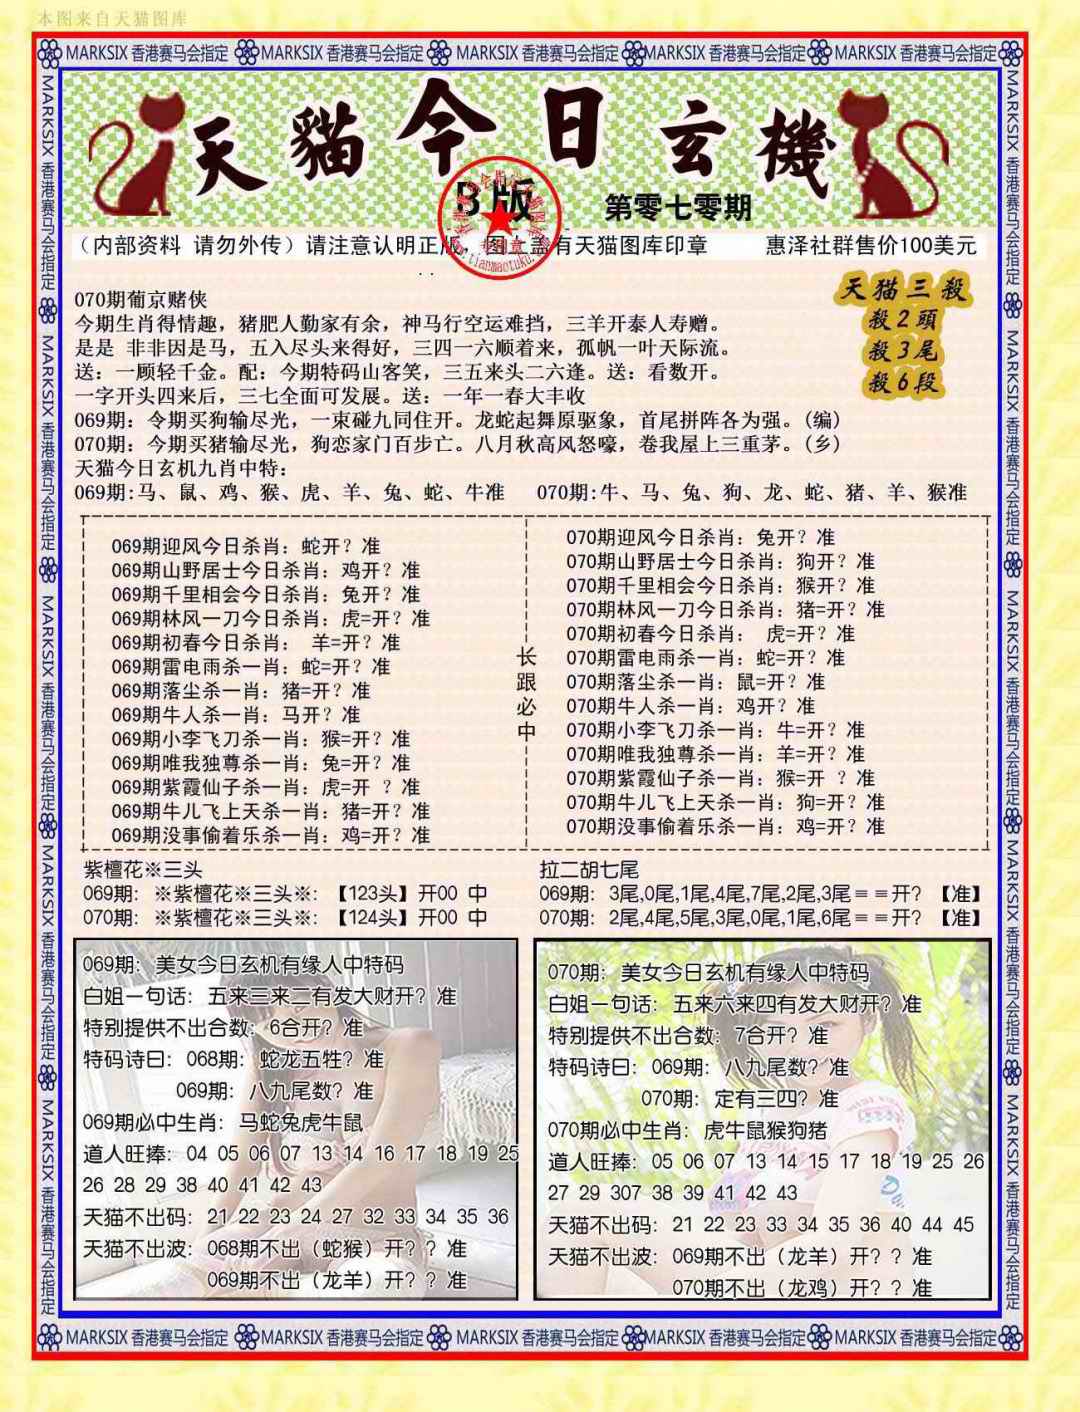 本图来自天猫图库
MARKSIX 香港赛马会指定 MARKSIX 香港赛马会指定 MARKSIX 香港赛马会指定 MARKSIX 香港赛马会指定 MARKSIX 香港赛马会指定
天貓今日玄機
B版
第零七零期
(内部资料 请勿外传)请注意认明正版,图上盖有天猫图库印章 惠泽社群售价100美元
天猫三殺
殺2頭
殺3尾
殺6段
070期葡京赌侠
今期生肖得情趣，猪肥人勤家有余，神马行空运难挡，三羊开泰人寿赠。
是是 非非因是马，五入尽头来得好，三四一六顺着来，孤帆一叶天际流。
送：一顾轻千金。配：今期特码山客笑，三五来头二六逢。送：看数开。
一字开头四来后，三七全面可发展。送：一年一春大丰收
069期：令期买狗输尽光，一束碰九同住开。龙蛇起舞原驱象，首尾拼阵各为强。(编)
070期：今期买猪输尽光，狗恋家门百步亡。八月秋高风怒嚎，卷我屋上三重茅。(乡)
天猫今日玄机九肖中特：
069期:马、鼠、鸡、猴、虎、羊、兔、蛇、牛准 070期:牛、马、兔、狗、龙、蛇、猪、羊、猴准
069期迎风今日杀肖：蛇开？准
069期山野居士今日杀肖：鸡开？准
069期千里相会今日杀肖：兔开？准
069期林风一刀今日杀肖：虎=开？准
069期初春今日杀肖： 羊=开？准
069期雷电雨杀一肖：蛇=开？准
069期落尘杀一肖：猪=开？准
069期牛人杀一肖：马开？准
069期小李飞刀杀一肖：猴=开？准
069期唯我独尊杀一肖：兔=开？准
069期紫霞仙子杀一肖：虎=开 ？准
069期牛儿飞上天杀一肖：猪=开？准
069期没事偷着乐杀一肖：鸡=开？准
长跟必中
070期迎风今日杀肖：兔开？准
070期山野居士今日杀肖：狗开？准
070期千里相会今日杀肖：猴开？准
070期林风一刀今日杀肖：猪=开？准
070期初春今日杀肖： 虎=开？准
070期雷电雨杀一肖：蛇=开？准
070期落尘杀一肖：鼠=开？准
070期牛人杀一肖：鸡开？准
070期小李飞刀杀一肖：牛=开？准
070期唯我独尊杀一肖：羊=开？准
070期紫霞仙子杀一肖：猴=开 ？准
070期牛儿飞上天杀一肖：狗=开？准
070期没事偷着乐杀一肖：鸡=开？准
紫檀花※三头
069期：※紫檀花※三头※：【123头】开00 中
070期：※紫檀花※三头※：【124头】开00 中
拉二胡七尾
069期：3尾,0尾,1尾,4尾,7尾,2尾,3尾≡≡开？【准】
070期：2尾,4尾,5尾,3尾,0尾,1尾,6尾≡≡开？【准】
069期：美女今日玄机有缘人中特码
白姐一句话：五来三来二有发大财开？准
特别提供不出合数：6合开？准
特码诗曰：068期：蛇龙五牲？准
069期：八九尾数？准
069期必中生肖：马蛇兔虎牛鼠
道人旺捧：04 05 06 07 13 14 16 17 18 19 25
26 28 29 38 40 41 42 43
天猫不出码：21 22 23 24 27 32 33 34 35 36
天猫不出波：068期不出（蛇猴）开？？准
069期不出（龙羊）开？？准
070期：美女今日玄机有缘人中特码
白姐一句话：五来六来四有发大财开？准
特别提供不出合数：7合开？准
特码诗曰：069期：八九尾数？准
070期：定有三四？准
070期必中生肖：虎牛鼠猴狗猪
道人旺捧：05 06 07 13 14 15 17 18 19 25 26
27 29 307 38 39 41 42 43
天猫不出码：21 22 23 33 34 35 36 40 44 45
天猫不出波：069期不出（龙羊）开？？准
070期不出（龙鸡）开？？准
MARKSIX 香港赛马会指定 MARKSIX 香港赛马会指定 MARKSIX 香港赛马会指定 MARKSIX 香港赛马会指定 MARKSIX 香港赛马会指定